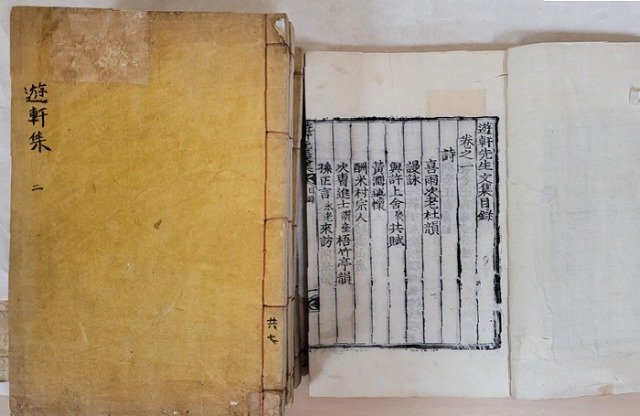 遊軒集
二
共七
遊軒先生文集目錄
卷之一
詩
喜雨次老杜韻
謾詠
與許上舍共賦
黃澗遣懷
酬米村宗人
次曺進士梧竹亭韻
孫正言永老來訪
目錄